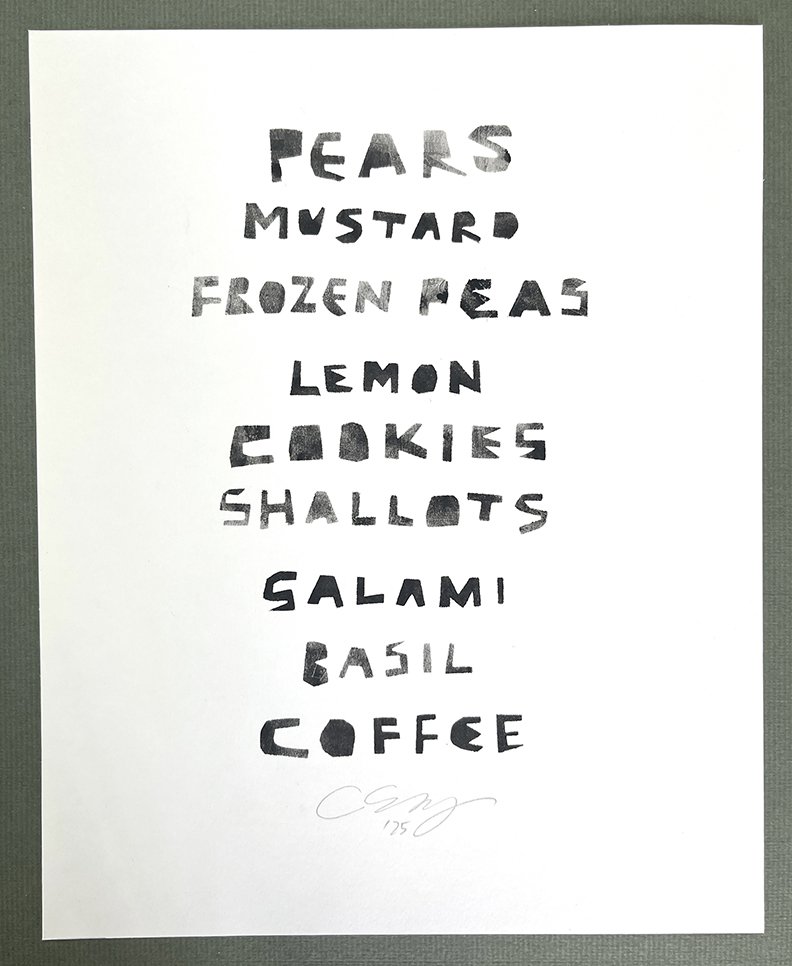 PEARS
MUSTARD
FROZEN PEAS
LEMON
COOKIES
SHALLOTS
SALAMI
BASIL
COFFEE
'25